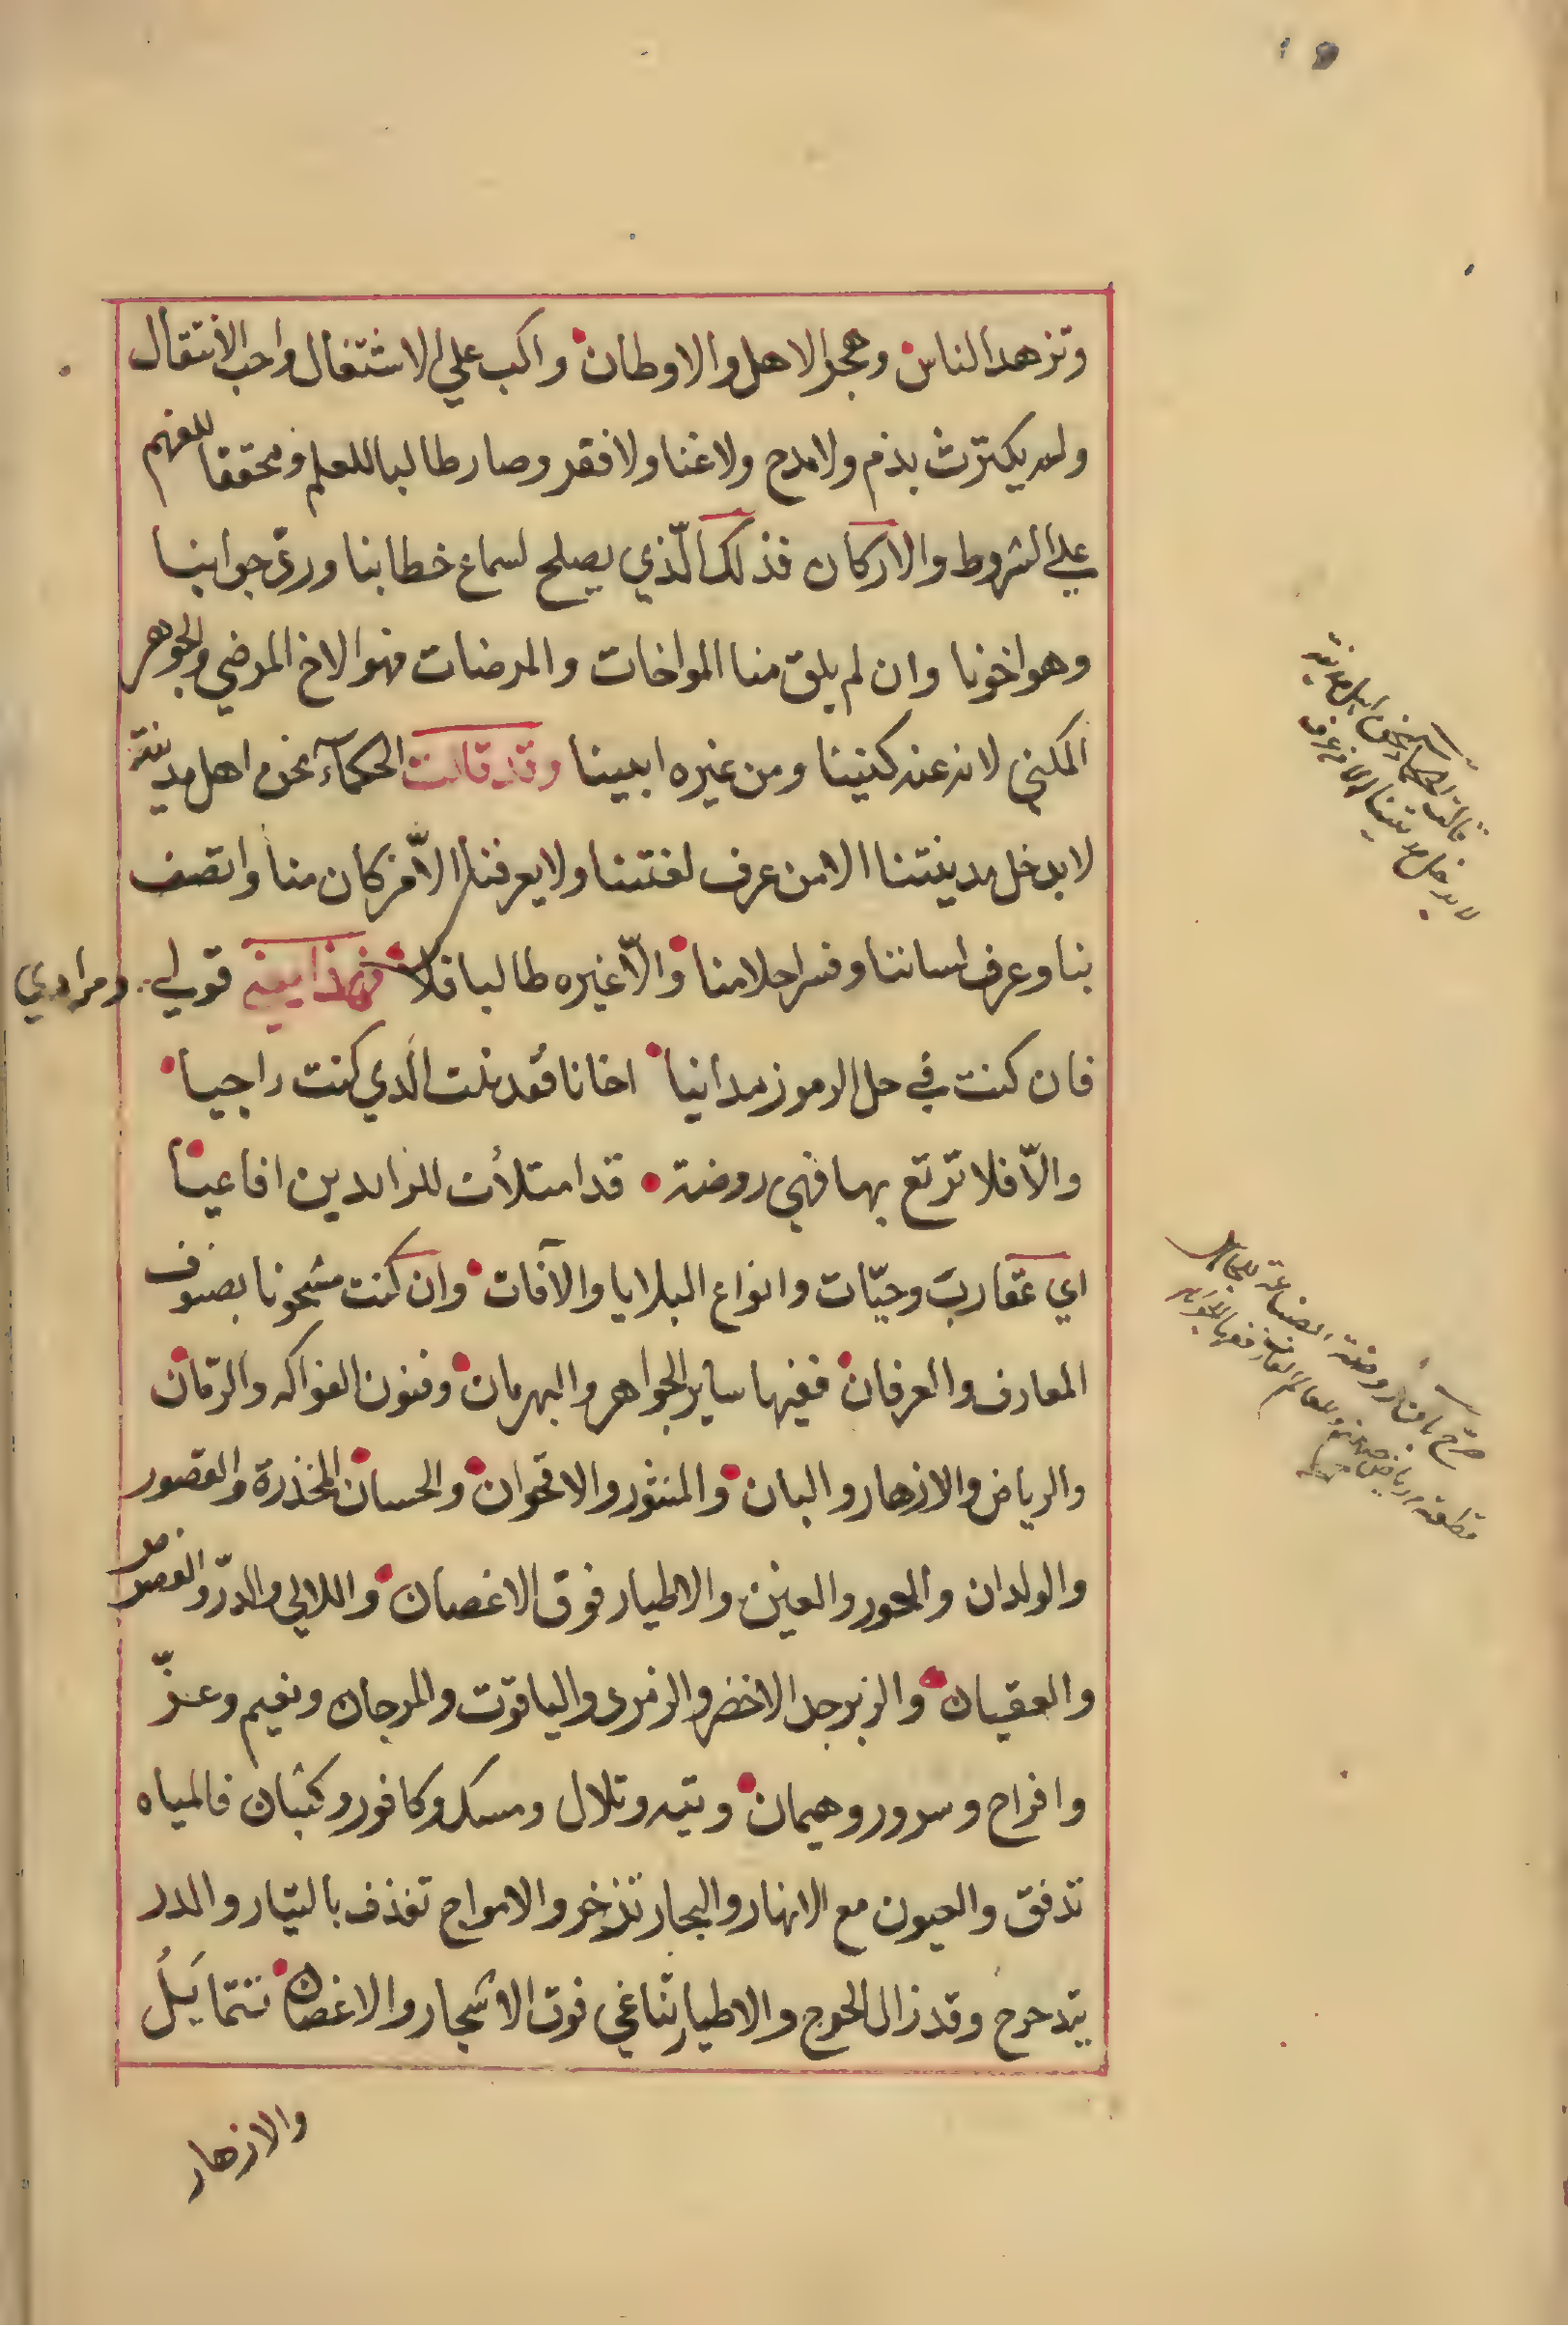 وتزهد الناس وهجر الاهل والاوطان واكب علي الاشتغال واحب الانتقال
ولم يكترث بذم ولا مدح ولا غنا ولا فقر وصار طالبا للعلم ومحققا للفهم
علي الشروط والاركان فذلك الّذي يصلح لسماع خطابنا وردّ جوابنا
وهو اخونا وان لم يلق منا المواخات والمرضات فهو الاخ المرضي والجوهر
المكني لانه عنه كنينا ومن غيره ابينا وقد قالت الحكمآء نحن اهل مدينة
لا يدخل مدينتنا الا من عرف لغتنا ولا يعرفنا الّا من كان منا واتصف
بنا وعرف لساننا وفسر احلامنا والّا غيره طالبا فلا فهذا يعني قولي ومرادي
فان كنت في حل الرموز مدانيا اخانا فقد نلت الّذي كنت راجيا
والّا فلا ترتع بها فهي روضة قد امتلأت للزايدين افاعيا
اي عقارب وحيّات وانواع البلايا والآفات وان كنت مشحونا بصنوف
المعارف والعرفان ففيها ساير الجواهر والبهرمان وفنون الفواكه والرّمان
والرياض والازهار والبان والمنثور والاقحوان والحسان المخذرة والقصور
والولدان والحور والعين والاطيار فوق الاغصان واللالي والدرّ والفصوص
والعقيان والزبرجد الاخضر والزمرد والياقوت والمرجان ونعيم وعزّ
وافراح وسرور وهيمان وتيه وتلال ومسك وكافور وكثبان فالمياه
تدفق والعيون مع الانهار والبحار تذخر والامواج تقذف بالتيّار والدر
يتدحرج وقد زال الحرج والاطيار تناغي فوق الاشجار والاغصان تتمايل
والازهار
قالت الحكماء نحن اهل مدينة
لا يدخل مدينتنا الا من عرف